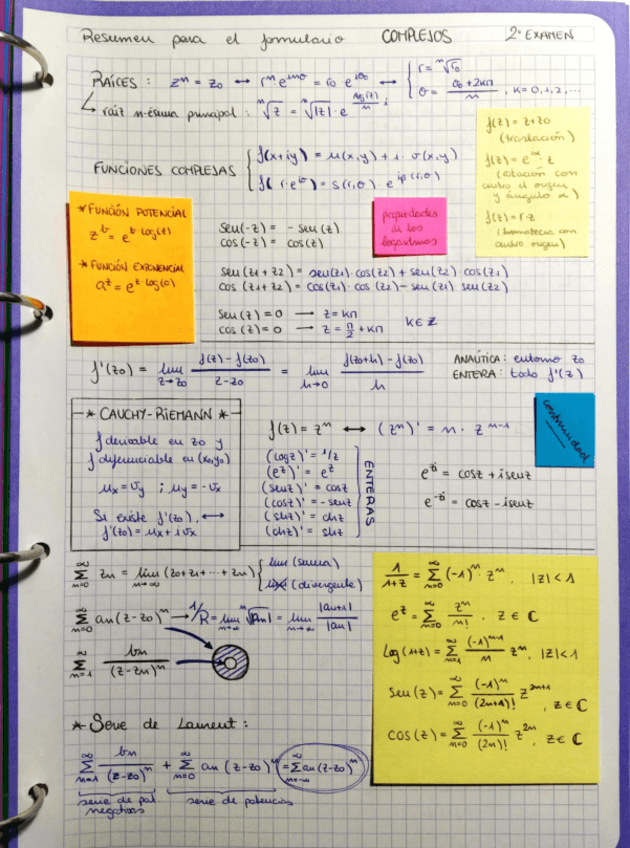 Resumen para el formulario COMPLEJOS 2º EXAMEN
RAÍCES : zⁿ = z₀ ↔ rⁿ·e^(inθ) = r₀ e^(iθ₀) ↔ { r = ⁿ√r₀
θ = (θ₀ + 2kπ)/n , k = 0, 1, 2, ...
raíz n-ésima principal : ⁿ√z = ⁿ√|z| · e^(Arg(z)/n i)
f(z) = z + z₀
(traslación)
f(z) = e^(iα) · z
(rotación con
centro el origen
y ángulo α)
f(z) = r·z
(homotecia con
centro origen)
FUNCIONES COMPLEJAS { f(x+iy) = u(x,y) + i · v(x,y)
f(r·e^(iθ)) = s(r,θ) · e^(iφ(r,θ))
* FUNCIÓN POTENCIAL
z^b = e^(b·log(z))
* FUNCIÓN EXPONENCIAL
a^z = e^(z·log(a))
propiedades
de los
logaritmos
sen(-z) = - sen(z)
cos(-z) = cos(z)
sen(z₁ + z₂) = sen(z₁)·cos(z₂) + sen(z₂)·cos(z₁)
cos(z₁+z₂) = cos(z₁)·cos(z₂) - sen(z₁)·sen(z₂)
sen(z) = 0 → z = kπ
cos(z) = 0 → z = π/2 + kπ k∈Z
f'(z₀) = lim z→z₀ (f(z) - f(z₀))/(z - z₀) = lim h→0 (f(z₀+h) - f(z₀))/h
ANALÍTICA : entorno z₀
ENTERA : todo f'(z)
* CAUCHY-RIEMANN *
f derivable en z₀ y
f diferenciable en (x₀,y₀)
uₓ = v_y ; u_y = -vₓ
Si existe f'(z₀), ↔
f'(z₀) = uₓ + i vₓ
f(z) = zⁿ ↔ (zⁿ)' = n · zⁿ⁻¹
(log z)' = 1/z
(e^z)' = e^z
(sen z)' = cos z
(cos z)' = - sen z
(sh z)' = ch z
(ch z)' = sh z
ENTERAS
continuidad
e^(zi) = cos z + i sen z
e^(-zi) = cos z - i sen z
∞ Σ n=0 zₙ = lim n→∞ (z₀ + z₁ + ... + zₙ) { lim (suma)
lim (divergente)
∞ Σ n=0 aₙ(z-z₀)ⁿ → 1/R = lim n→∞ ⁿ√|aₙ| = lim n→∞ |aₙ₊₁|/|aₙ|
∞ Σ n=1 bₙ/(z-z₀)ⁿ
1/(1+z) = ∞ Σ n=0 (-1)ⁿ · zⁿ , |z| < 1
e^z = ∞ Σ n=0 zⁿ/n! . z ∈ C
log(1+z) = ∞ Σ n=1 (-1)ⁿ⁻¹/n zⁿ , |z| < 1
sen(z) = ∞ Σ n=0 (-1)ⁿ/(2n+1)! z²ⁿ⁺¹ , z ∈ C
cos(z) = ∞ Σ n=0 (-1)ⁿ/(2n)! z²ⁿ , z ∈ C
* Serie de Laurent :
∞ Σ n=1 bₙ/(z-z₀)ⁿ + ∞ Σ n=0 aₙ (z-z₀)ⁿ = ∞ Σ n=-∞ aₙ(z-z₀)ⁿ
serie de pot. serie de potencias
negativas